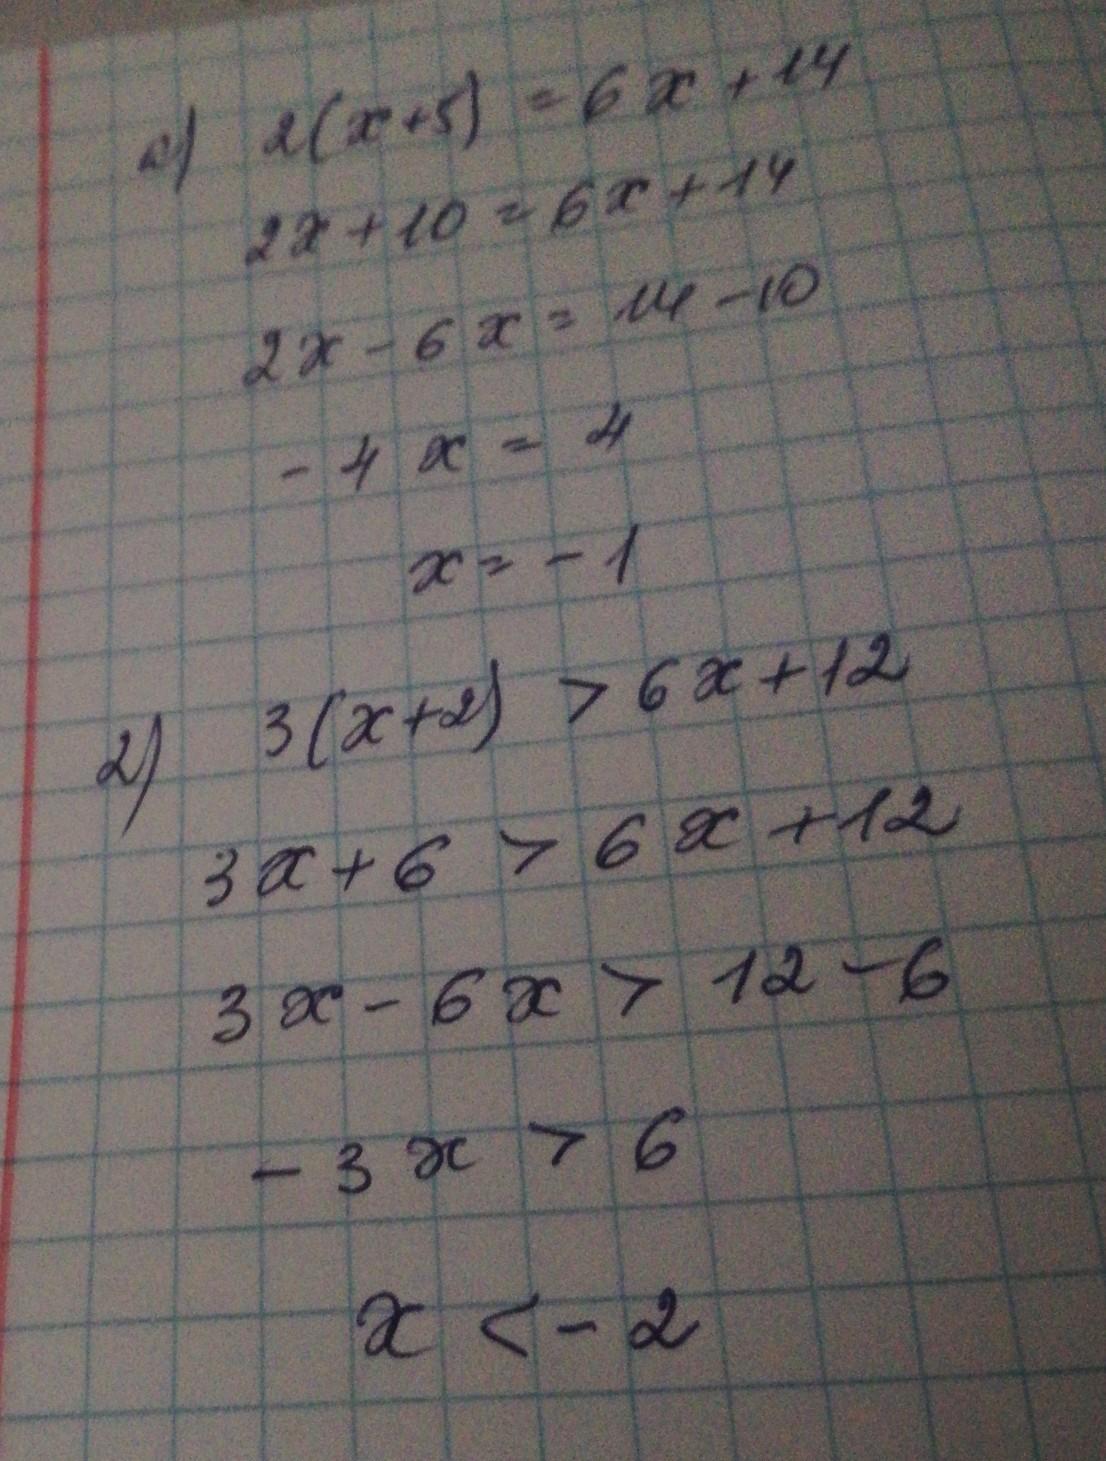 a) 2(x+5) = 6x + 14
2x + 10 = 6x + 14
2x - 6x = 14 - 10
- 4x = 4
x = - 1
2) 3(x+2) > 6x + 12
3x + 6 > 6x + 12
3x - 6x > 12 - 6
- 3x > 6
x < - 2